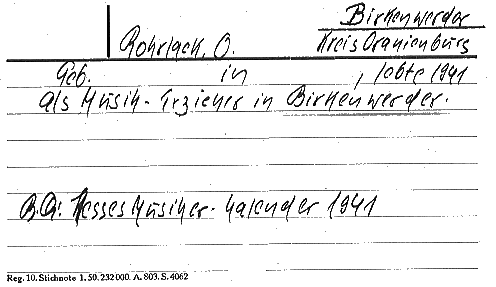 Birkenwerder
Rohrlack, O. Kreis Oranienburg
Geb. in , lebte 1941
als Musik-Erzieher in Birkenwerder.
B.Q: Hesses Musiker-Kalender 1941
Reg. 10. Stichnote 1. 50. 232000. A. 803. S. 4062